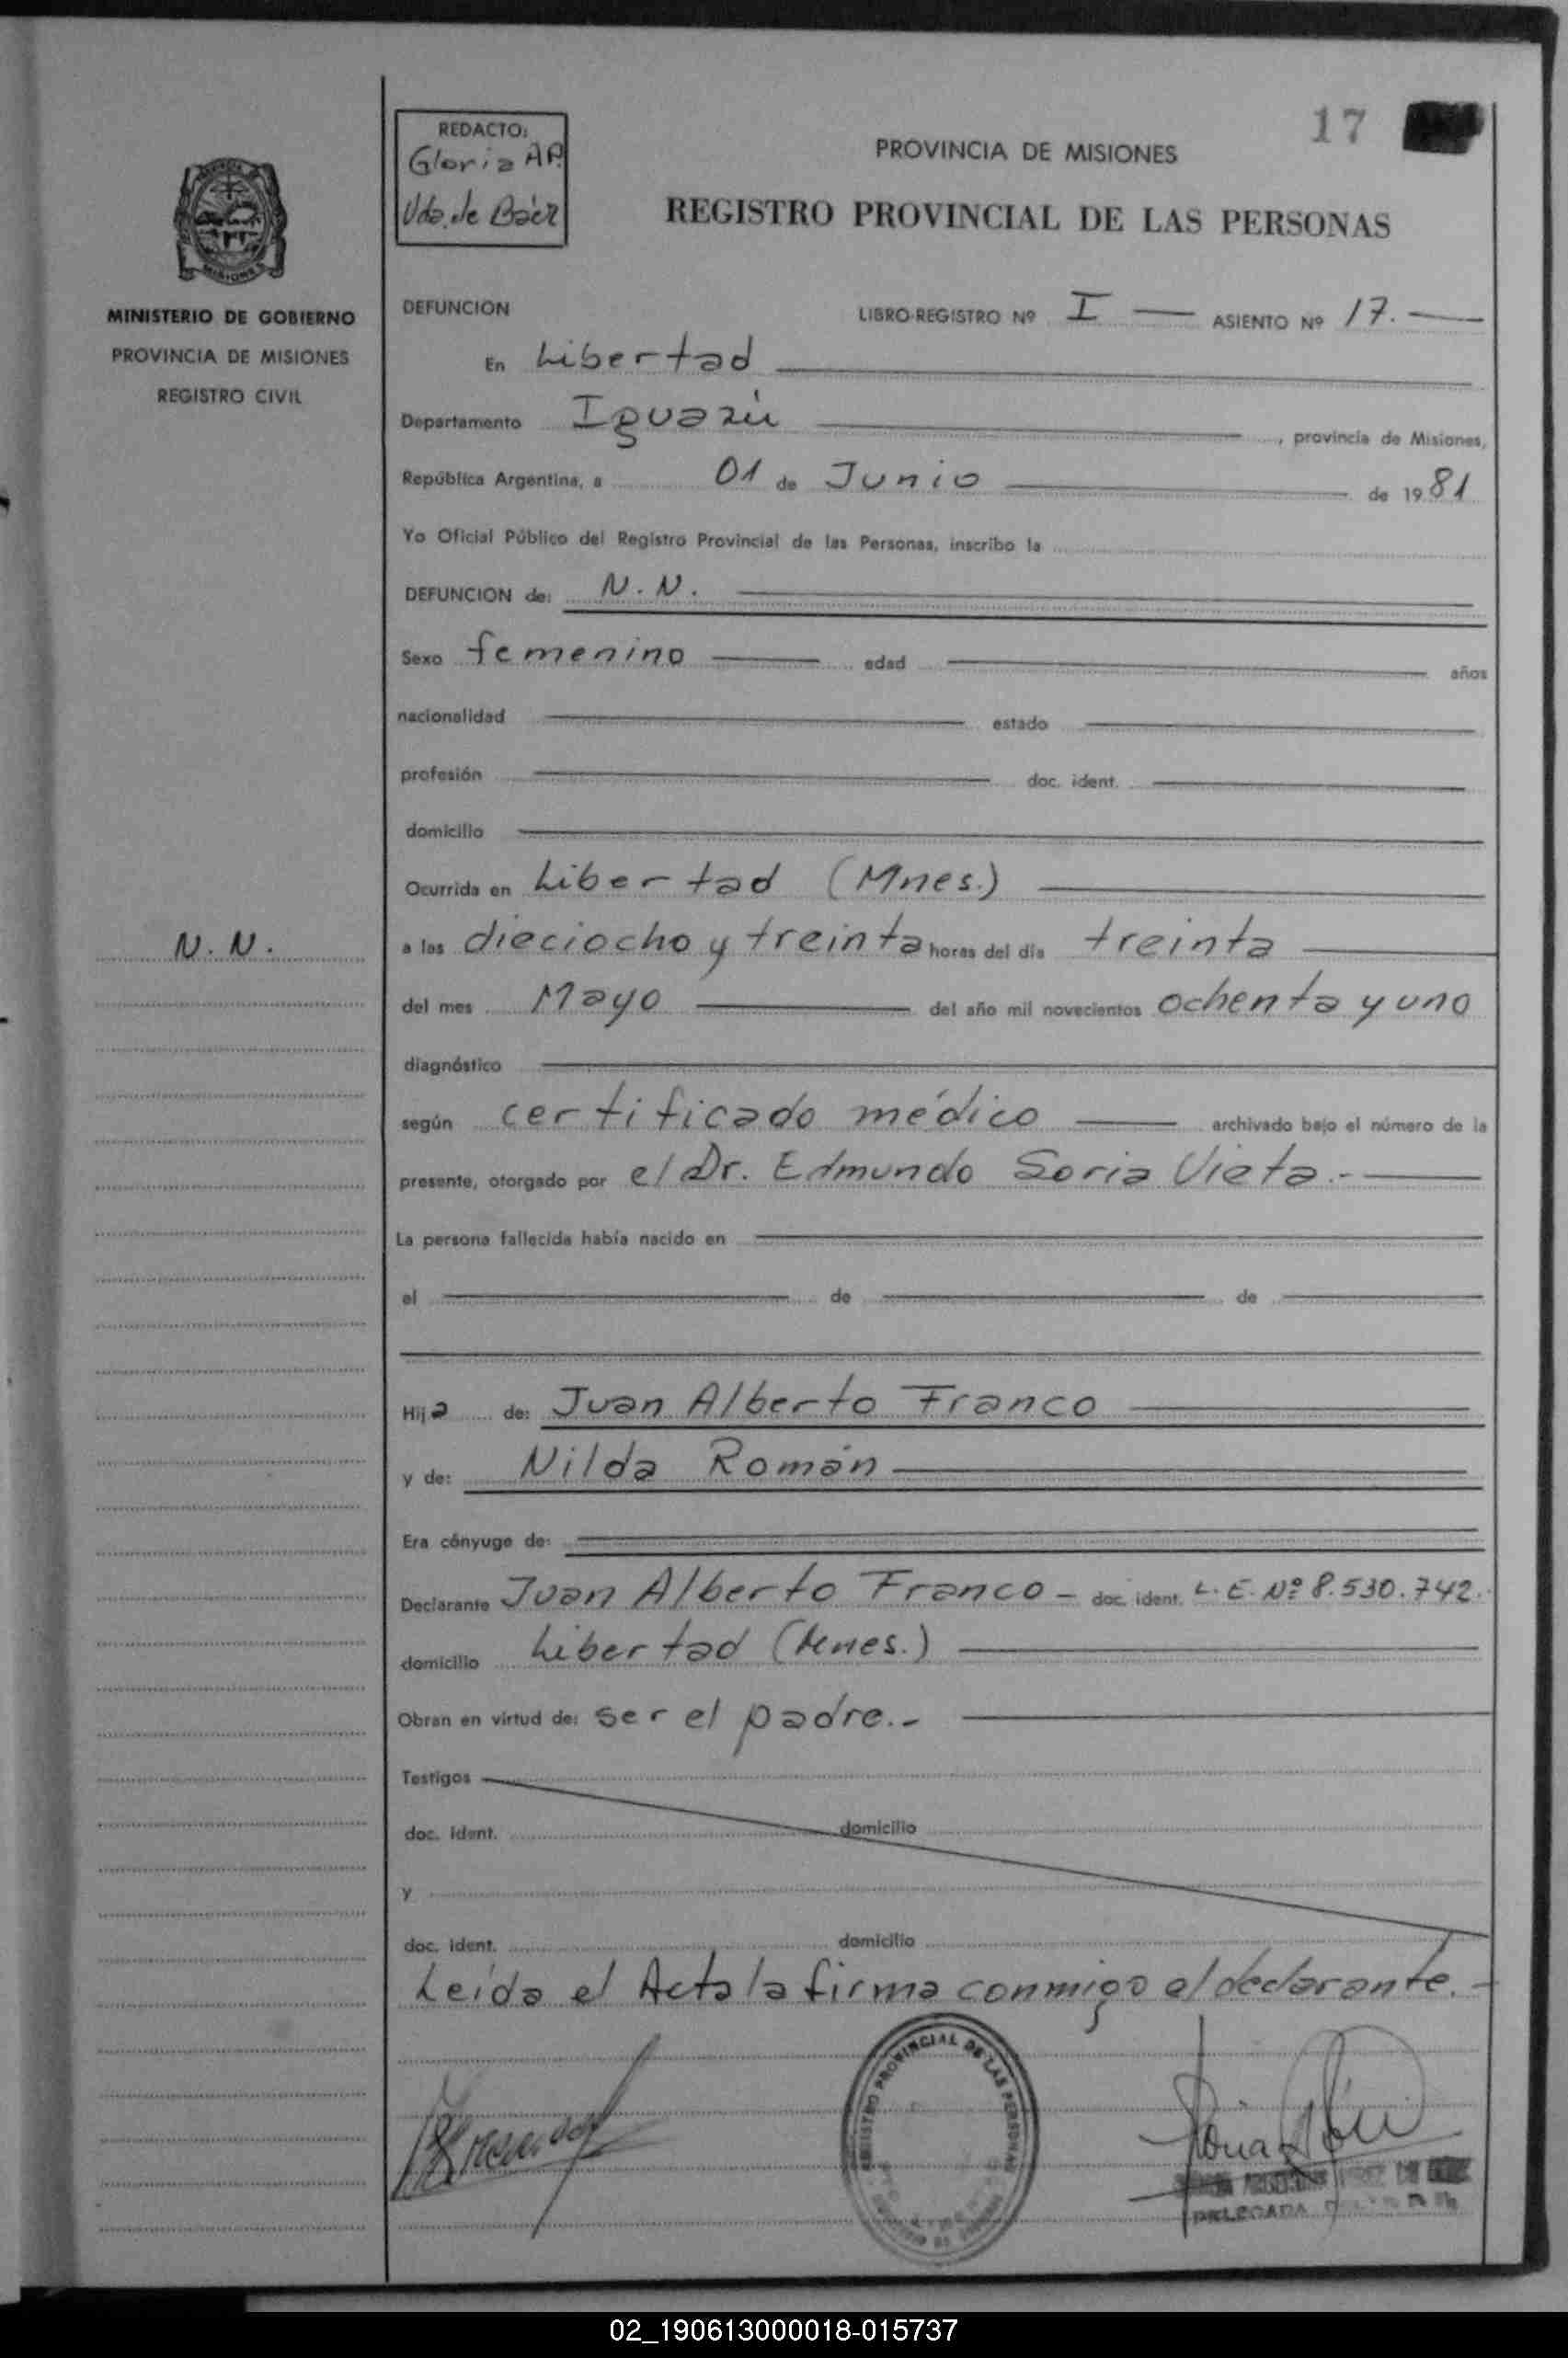 17
REDACTO:
Gloria A P.
Vda. de Báez
PROVINCIA DE MISIONES
REGISTRO PROVINCIAL DE LAS PERSONAS
MISIONES
MINISTERIO DE GOBIERNO
PROVINCIA DE MISIONES
REGISTRO CIVIL
DEFUNCION LIBRO-REGISTRO Nº I — ASIENTO Nº 17. —
En Libertad
Departamento Iguazú , provincia de Misiones,
República Argentina, a 01 de Junio de 1981
Yo Oficial Público del Registro Provincial de las Personas, inscribo la
DEFUNCION de: N. N.
Sexo femenino edad años
nacionalidad estado
profesión doc. ident.
domicilio
Ocurrida en Libertad (Mnes.)
N. N.
a las dieciocho y treinta horas del día treinta
del mes Mayo del año mil novecientos ochenta y uno
diagnóstico
según certificado médico archivado bajo el número de la
presente, otorgado por el Dr. Edmundo Soria Vieta.-
La persona fallecida había nacido en
el de de
Hija de: Juan Alberto Franco
y de: Nilda Román
Era cónyuge de:
Declarante Juan Alberto Franco - doc. ident. L. E. Nº 8.530.742.
domicilio Libertad (Mnes.)
Obran en virtud de: ser el padre.-
Testigos
doc. ident. domicilio
y
doc. ident. domicilio
Leída el Acta la firma conmigo el declarante.-
REGISTRO PROVINCIAL DE LAS PERSONAS
DELEGADA
02_190613000018-015737